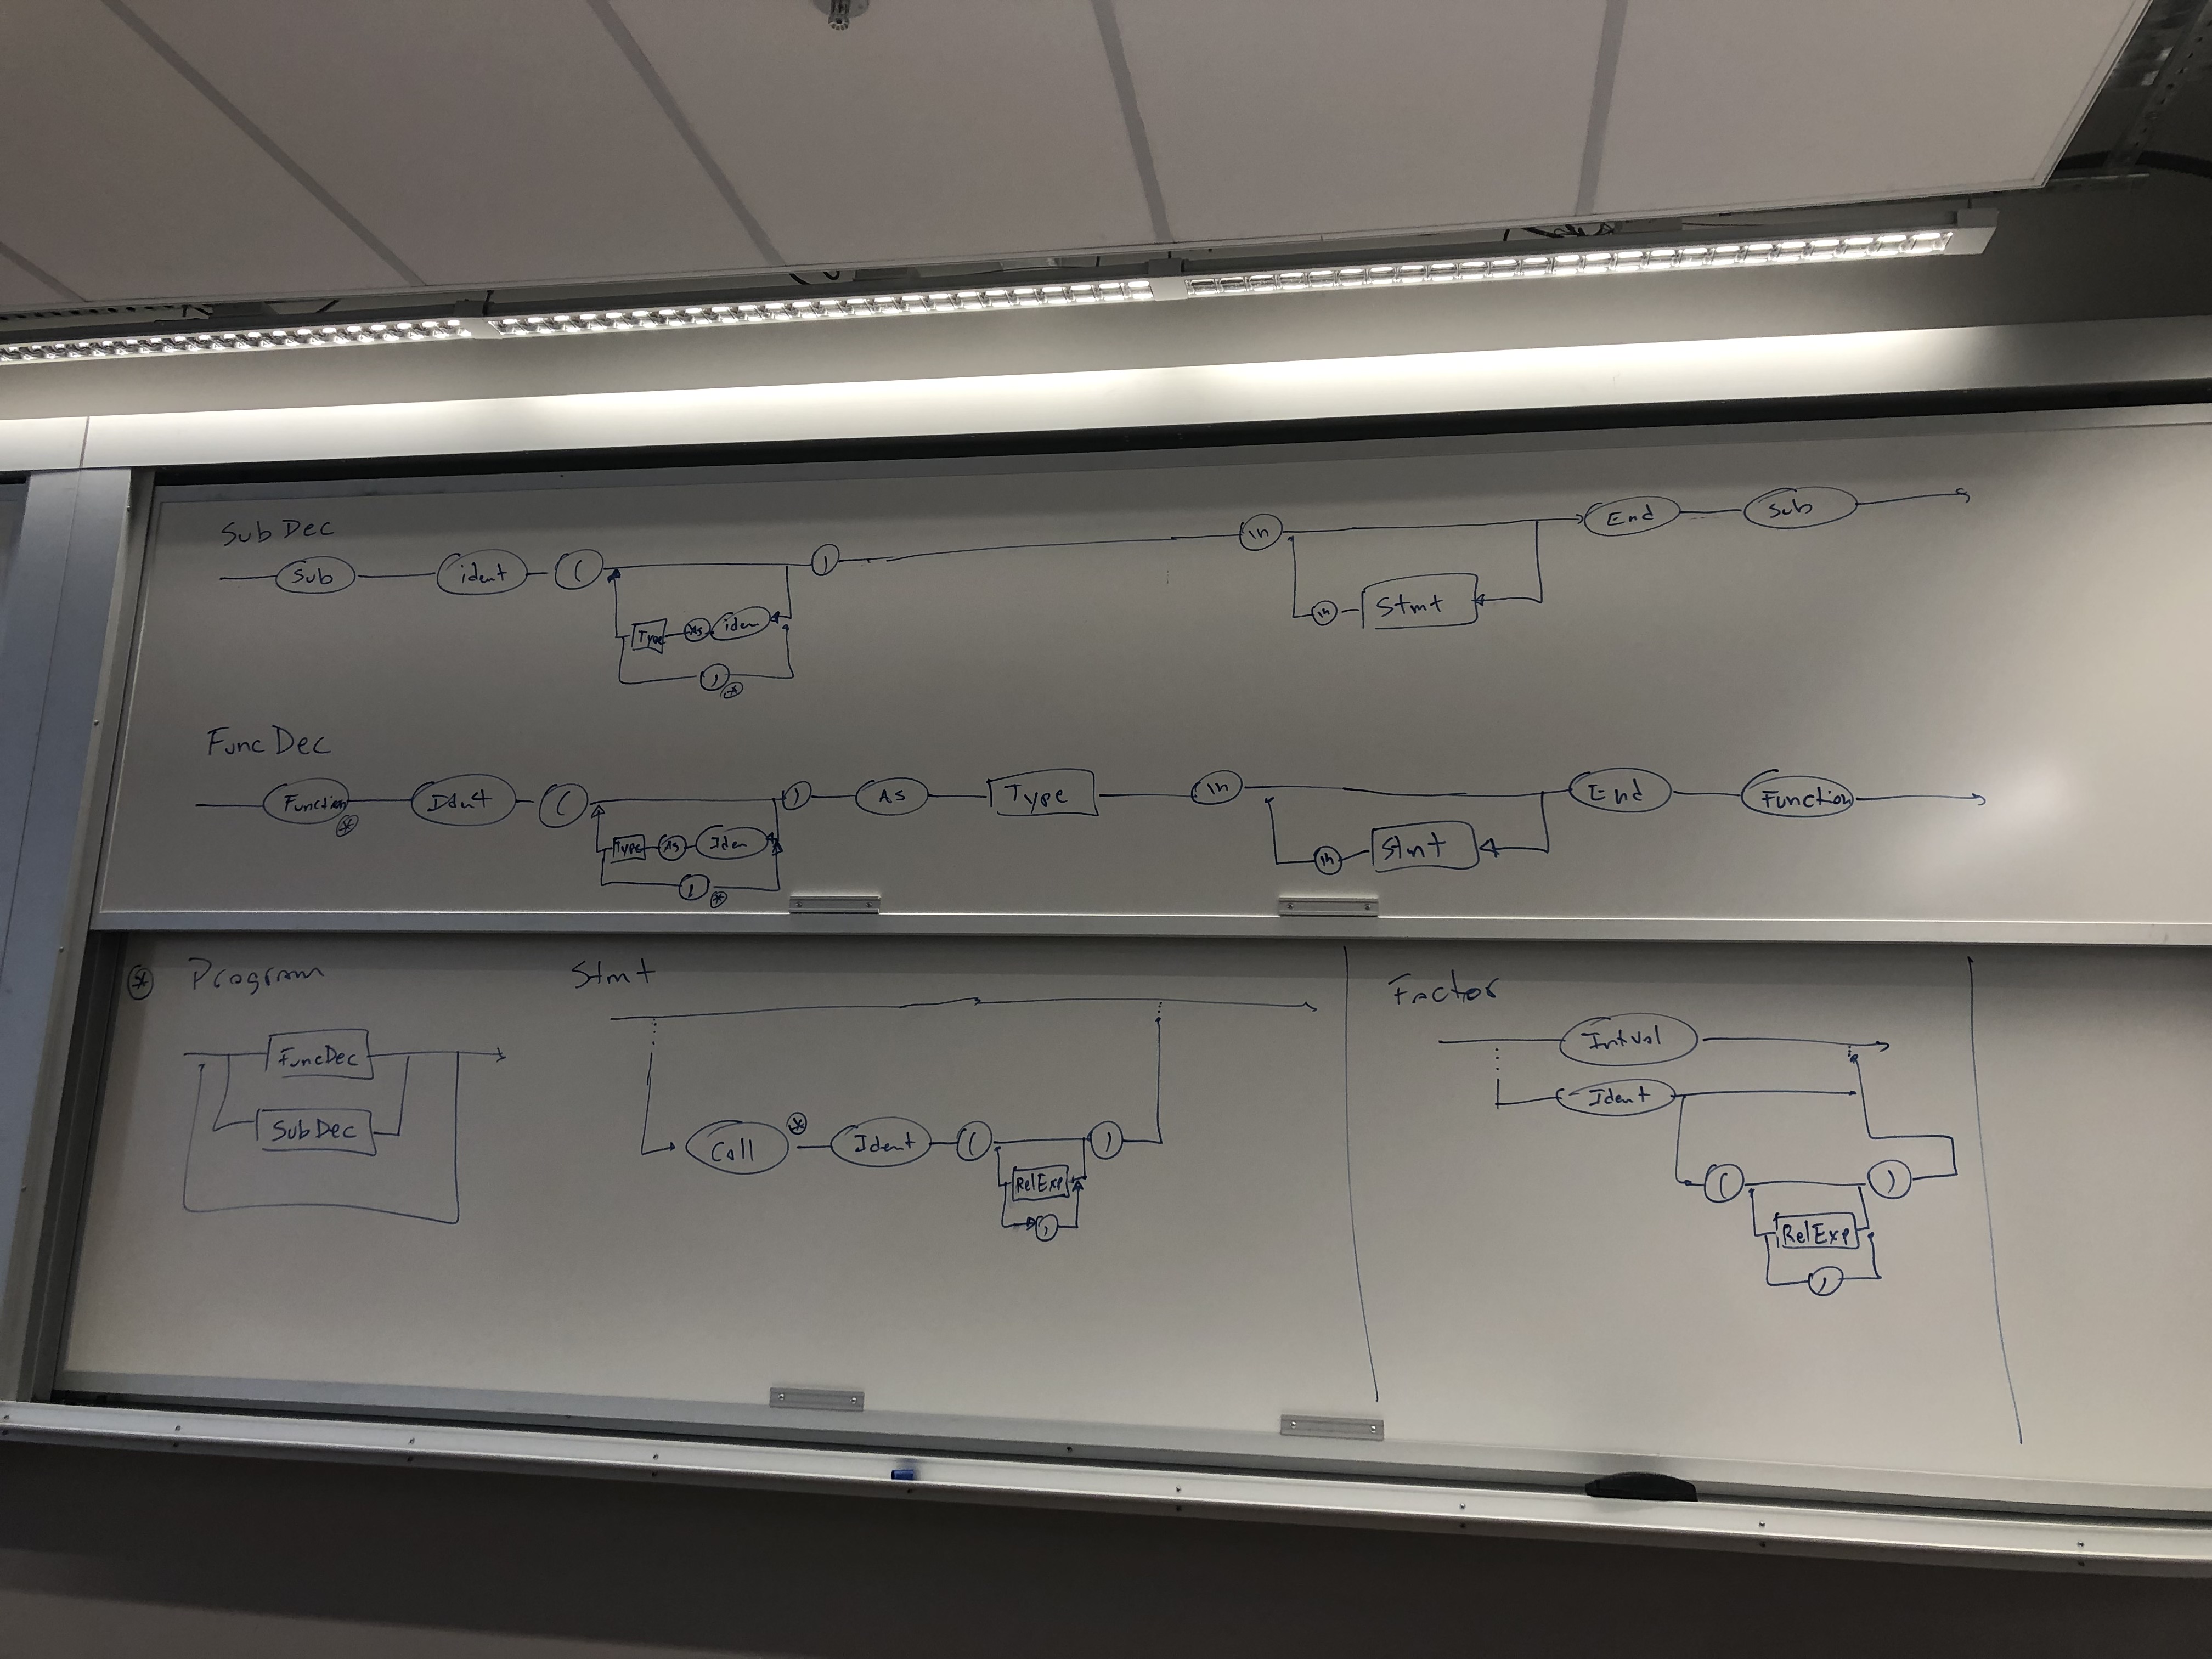 SubDec
Sub ident ( ) \n End Sub
Type As iden \n Stmt
, *
FuncDec
Function * Ident ( ) As Type \n End Function
Type As Iden \n Stmt
, *
* Program
FuncDec
SubDec
Stmt
Call * Ident ( )
RelExp
,
Factor
IntVal
Ident
( )
RelExp
,